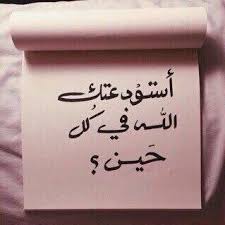 أستودعتك
الله في كُل
حَين ؟